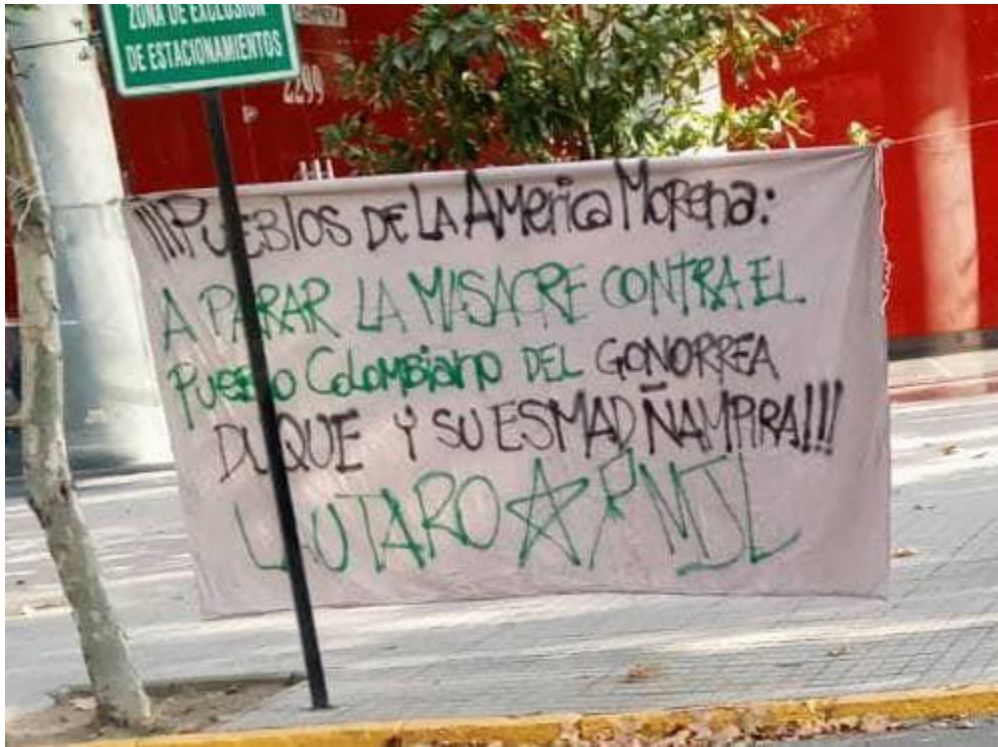 ZONA DE EXCLUSIÓN
DE ESTACIONAMIENTOS
2299
¡¡¡PUEBLOS DE LA AMERICA MORENA:
A PARAR LA MASACRE CONTRA EL
PUEBLO COLOMBIANO DEL GONORREA
DUQUE Y SU ESMAD ÑAMPIRA!!!
LAUTARO PMJL